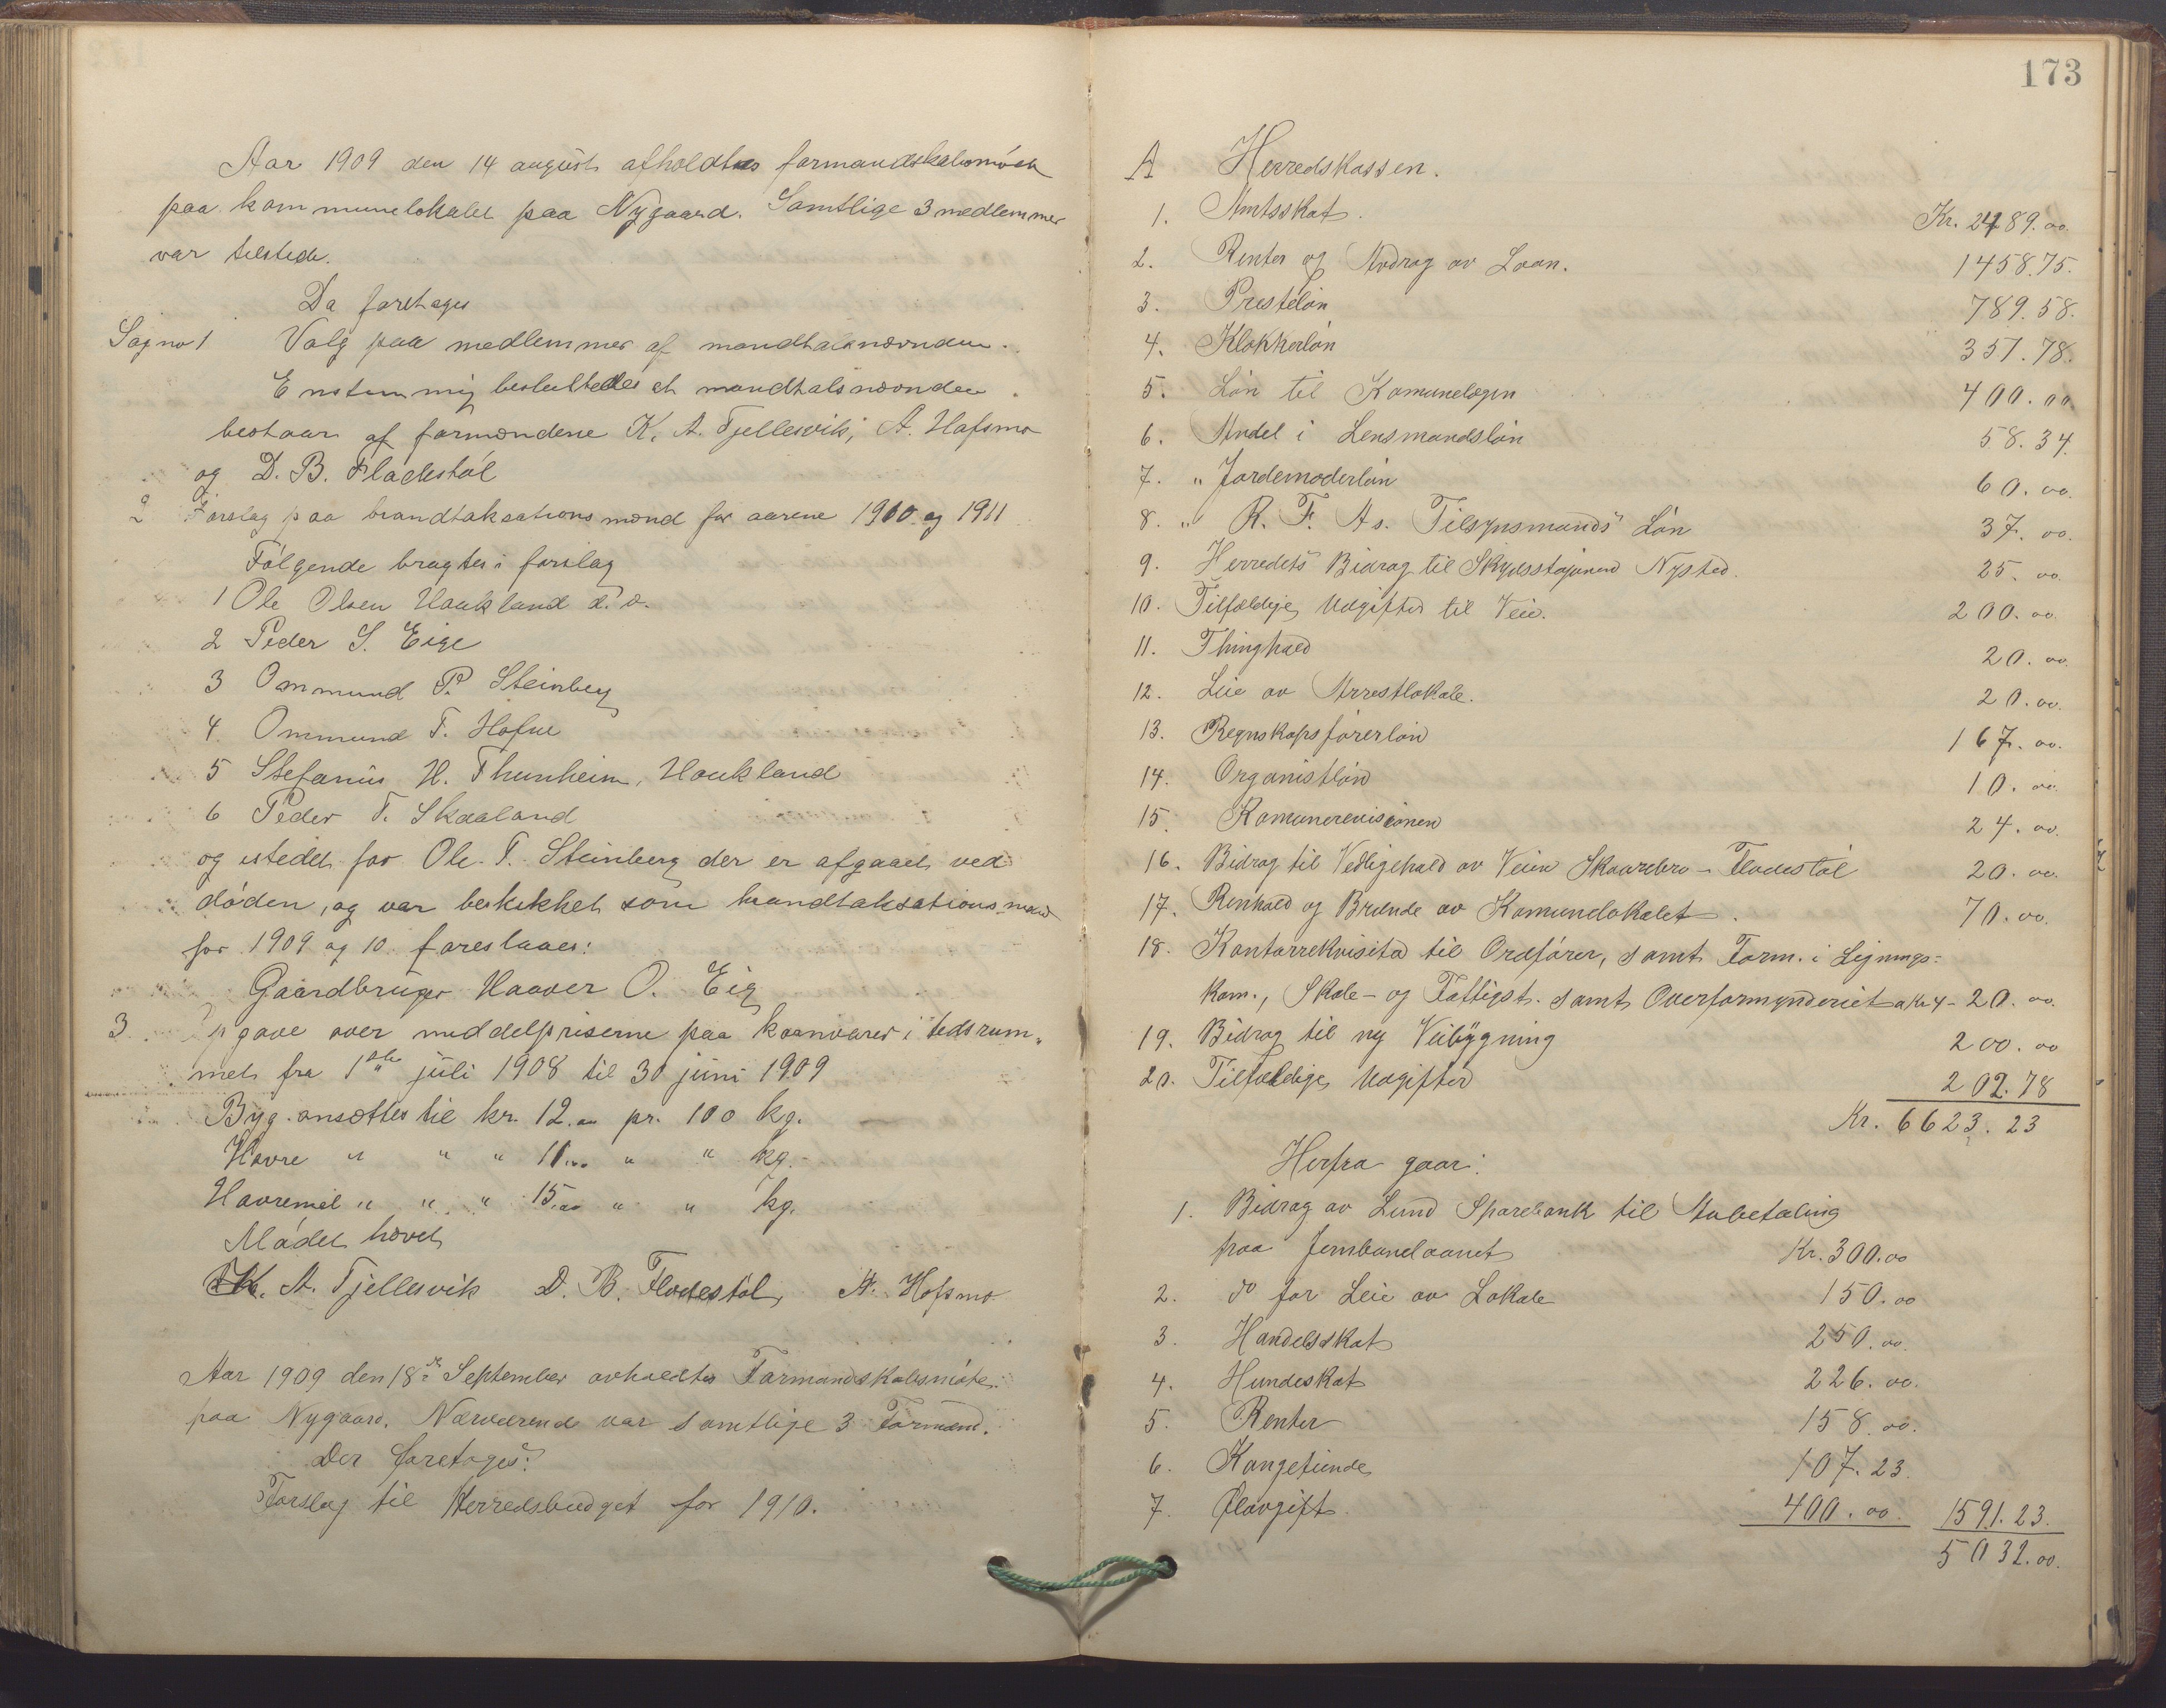 Aar 1909 den 14 august afholdtes formandskabsmöde
paa kommunelokalet paa Nygaard. Samtlige 3 medlemmer
var tilstede.
Da foretages
Sag no 1 Valg paa medlemmer af mandtalsnævnden.
Enstemmig besluttedes at mandtalsnævnden
bestaar af formændene K. A. Tjellesvik, A. Hafsmo
og D. B. Fladestöl
2 Forslag paa brandtaksationsmænd for aarene 1910 og 1911
Fölgende bragtes i forslag
1 Ole Olsen Haukland d. æ.
2 Peder S. Eige
3 Ommund P. Steinberg
4 Ommund T. Hofne
5 Stefanus H. Thunheim, Haukland
6 Peder T. Skaaland
og istedet for Ole T. Steinberg der er afgaaet ved
döden, og var beskikket som brandtaksationsmand
for 1909 og 10. foreslaaes:
Gaardbruger Haaver O. Eig
3 Opgave over middelpriserne paa kornvarer i tidsrum„
met fra 1ste juli 1908 til 30 juni 1909
Byg ansættes til kr. 12.00 pr. 100 kg.
Havre " " " 11.00 " " kg.
Havremel " " " 15.00 " " kg.
Mödet hævet
K. A. Tjellesvik D. B. Flodestöl, A. Hofsmo
Aar 1909 den 18de September avholdtes Formandskabsmöte
paa Nygaard. Nærværende var samtlige 3 Formænd.
Der foretoges:
Forslag til Herredsbudget for 1910.
173
A Herredskassen.
1. Amtsskat. Kr. 2489.00.
2. Renter og Avdrag av Laan. 1458.75.
3. Prestelön 789.58.
4. Klokkerlön 351.78.
5. Lön til Komunelægen 400.00
6. Andel i Lensmandslön 58.34.
7. " Jordemoderlön 60.00.
8. " R. F. As. Tilsynsmands Lön 37.00.
9. Herredets Bidrag til Skydsstasjonen Nysted. 25.00
10. Tilfældige Udgifter til Veie. 200.00
11. Thinghald 20.00.
12. Leie av Arrestlokale. 20.00.
13. Regnskapsförerlön 167.00.
14. Organistlön 10.00.
15. Komunerevisionen 24.00.
16. Bidrag til Vedligehald av Veien Skaarebro - Flodestöl 20.00.
17. Renhold og Brænde av Komunelokalet. 70.00.
18. Kontorrekvisita til Ordförer, samt Form. i Lignings-
kom., Skole- og Fattigst. samt Overformynderiet a Kr 4 - 20.00.
19. Bidrag til ny Veibygning 200.00
20. Tilfældige Udgifter 202.78
Kr. 6623.23
Herfra gaar:
1. Bidrag av Lund Sparebank til Avbetaling
paa Jernbanelaanet Kr. 300.00
2. do for Leie av Lokale 150.00
3. Handelsskat 250.00.
4. Hundeskat 226.00.
5. Renter 158.00.
6. Kongetiende 107.23.
7. Ølavgift. 400.00. 1591.23.
5032.00.